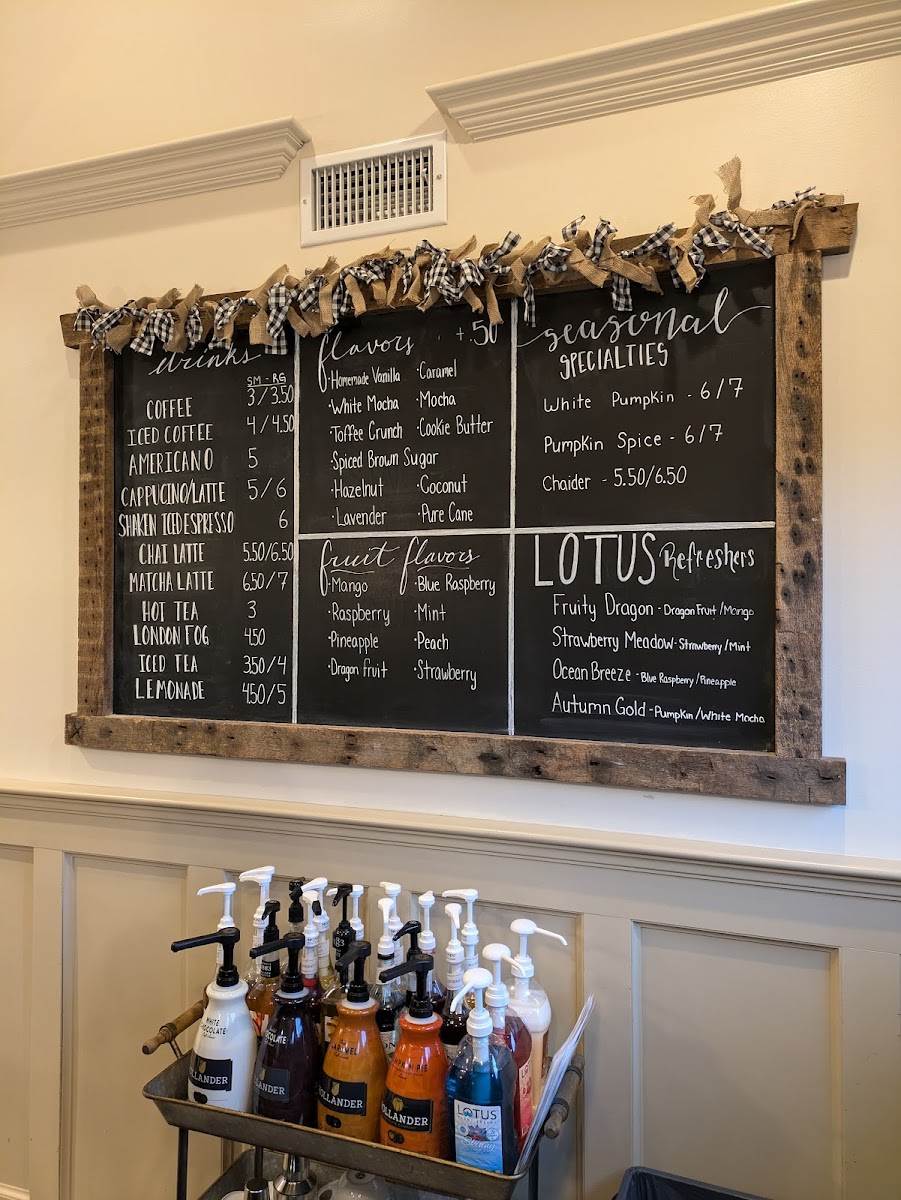 drinks
SM - RG
COFFEE 3/3.50
ICED COFFEE 4/4.50
AMERICANO 5
CAPPUCINO/LATTE 5/6
SHAKEN ICED ESPRESSO 6
CHAI LATTE 5.50/6.50
MATCHA LATTE 6.50/7
HOT TEA 3
LONDON FOG 4.50
ICED TEA 3.50/4
LEMONADE 4.50/5
flavors +.50
·Homemade Vanilla ·Caramel
·White Mocha ·Mocha
·Toffee Crunch ·Cookie Butter
·Spiced Brown Sugar
·Hazelnut ·Coconut
·Lavender ·Pure Cane
fruit flavors
·Mango ·Blue Raspberry
·Raspberry ·Mint
·Pineapple ·Peach
·Dragon fruit ·Strawberry
seasonal
SPECIALTIES
White Pumpkin - 6/7
Pumpkin Spice - 6/7
Chaider - 5.50/6.50
LOTUS Refreshers
Fruity Dragon - Dragon Fruit/Mango
Strawberry Meadow - Strawberry/Mint
Ocean Breeze - Blue Raspberry/Pineapple
Autumn Gold - Pumpkin/White Mocha
WHITE
CHOCOLATE
HOLLANDER
LOTUS